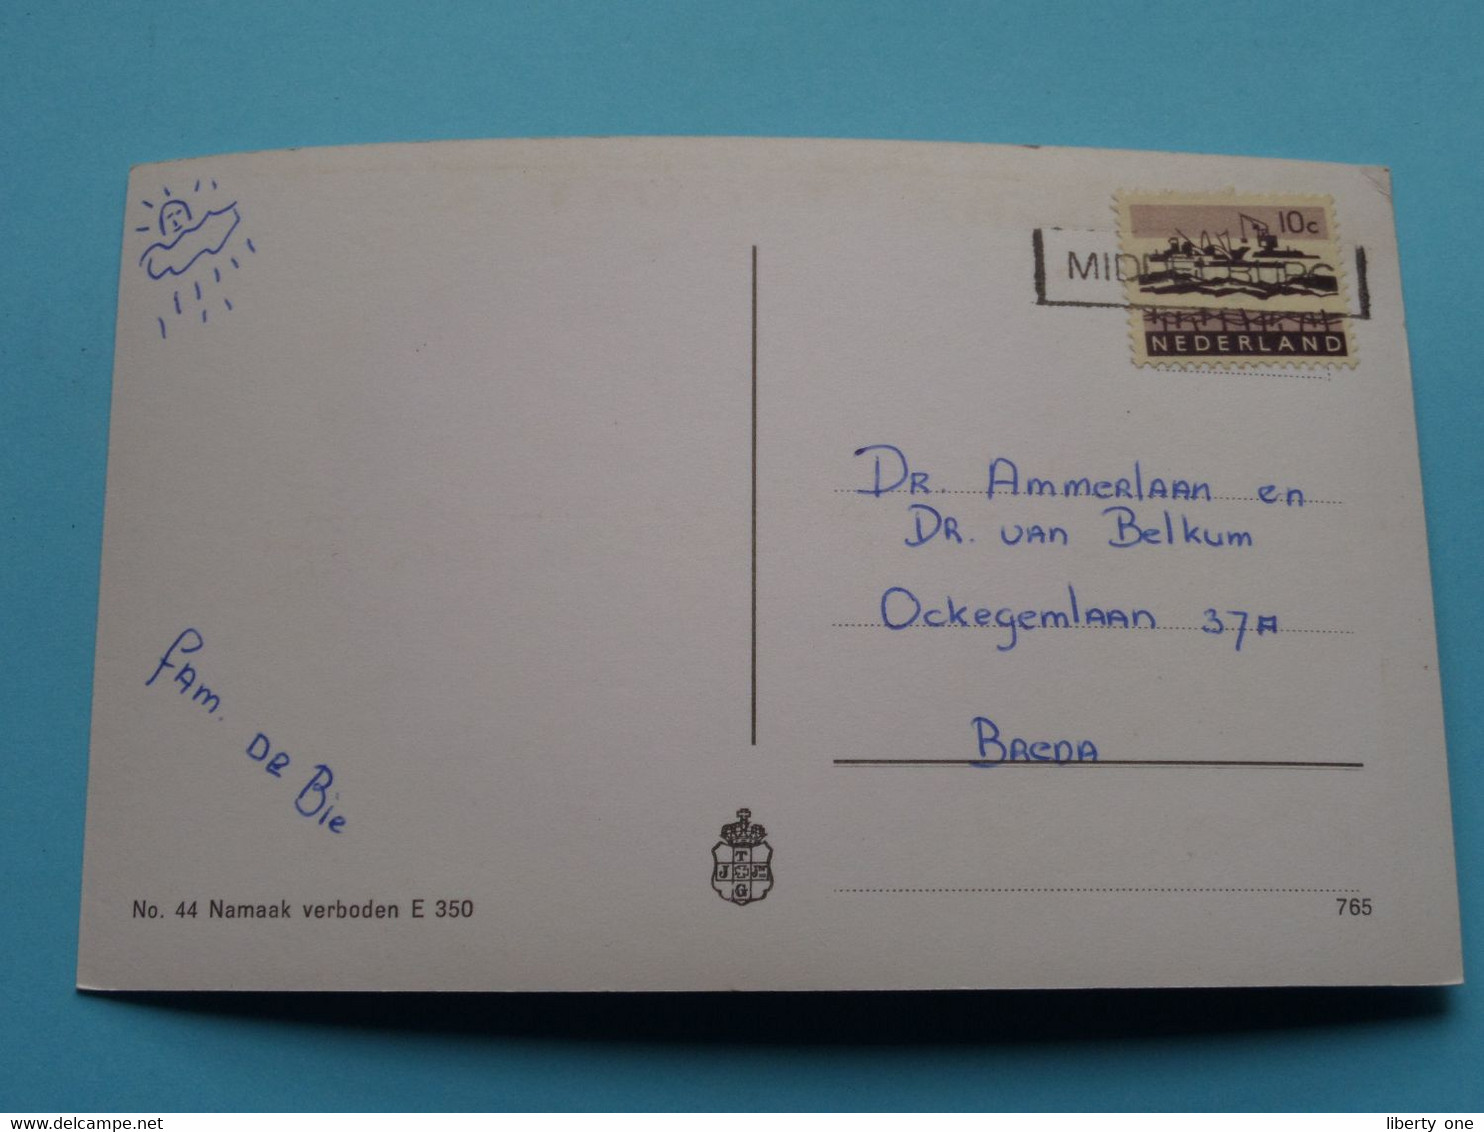 10c
MIDDELBURG
NEDERLAND
DR. AMMERLAAN en
DR. VAN Belkum
OckegemLAAN 37A
BREDA
FAM. DE Bie
T
J JZN
G
No. 44 Namaak verboden E 350
765
www.delcampe.net
liberty one